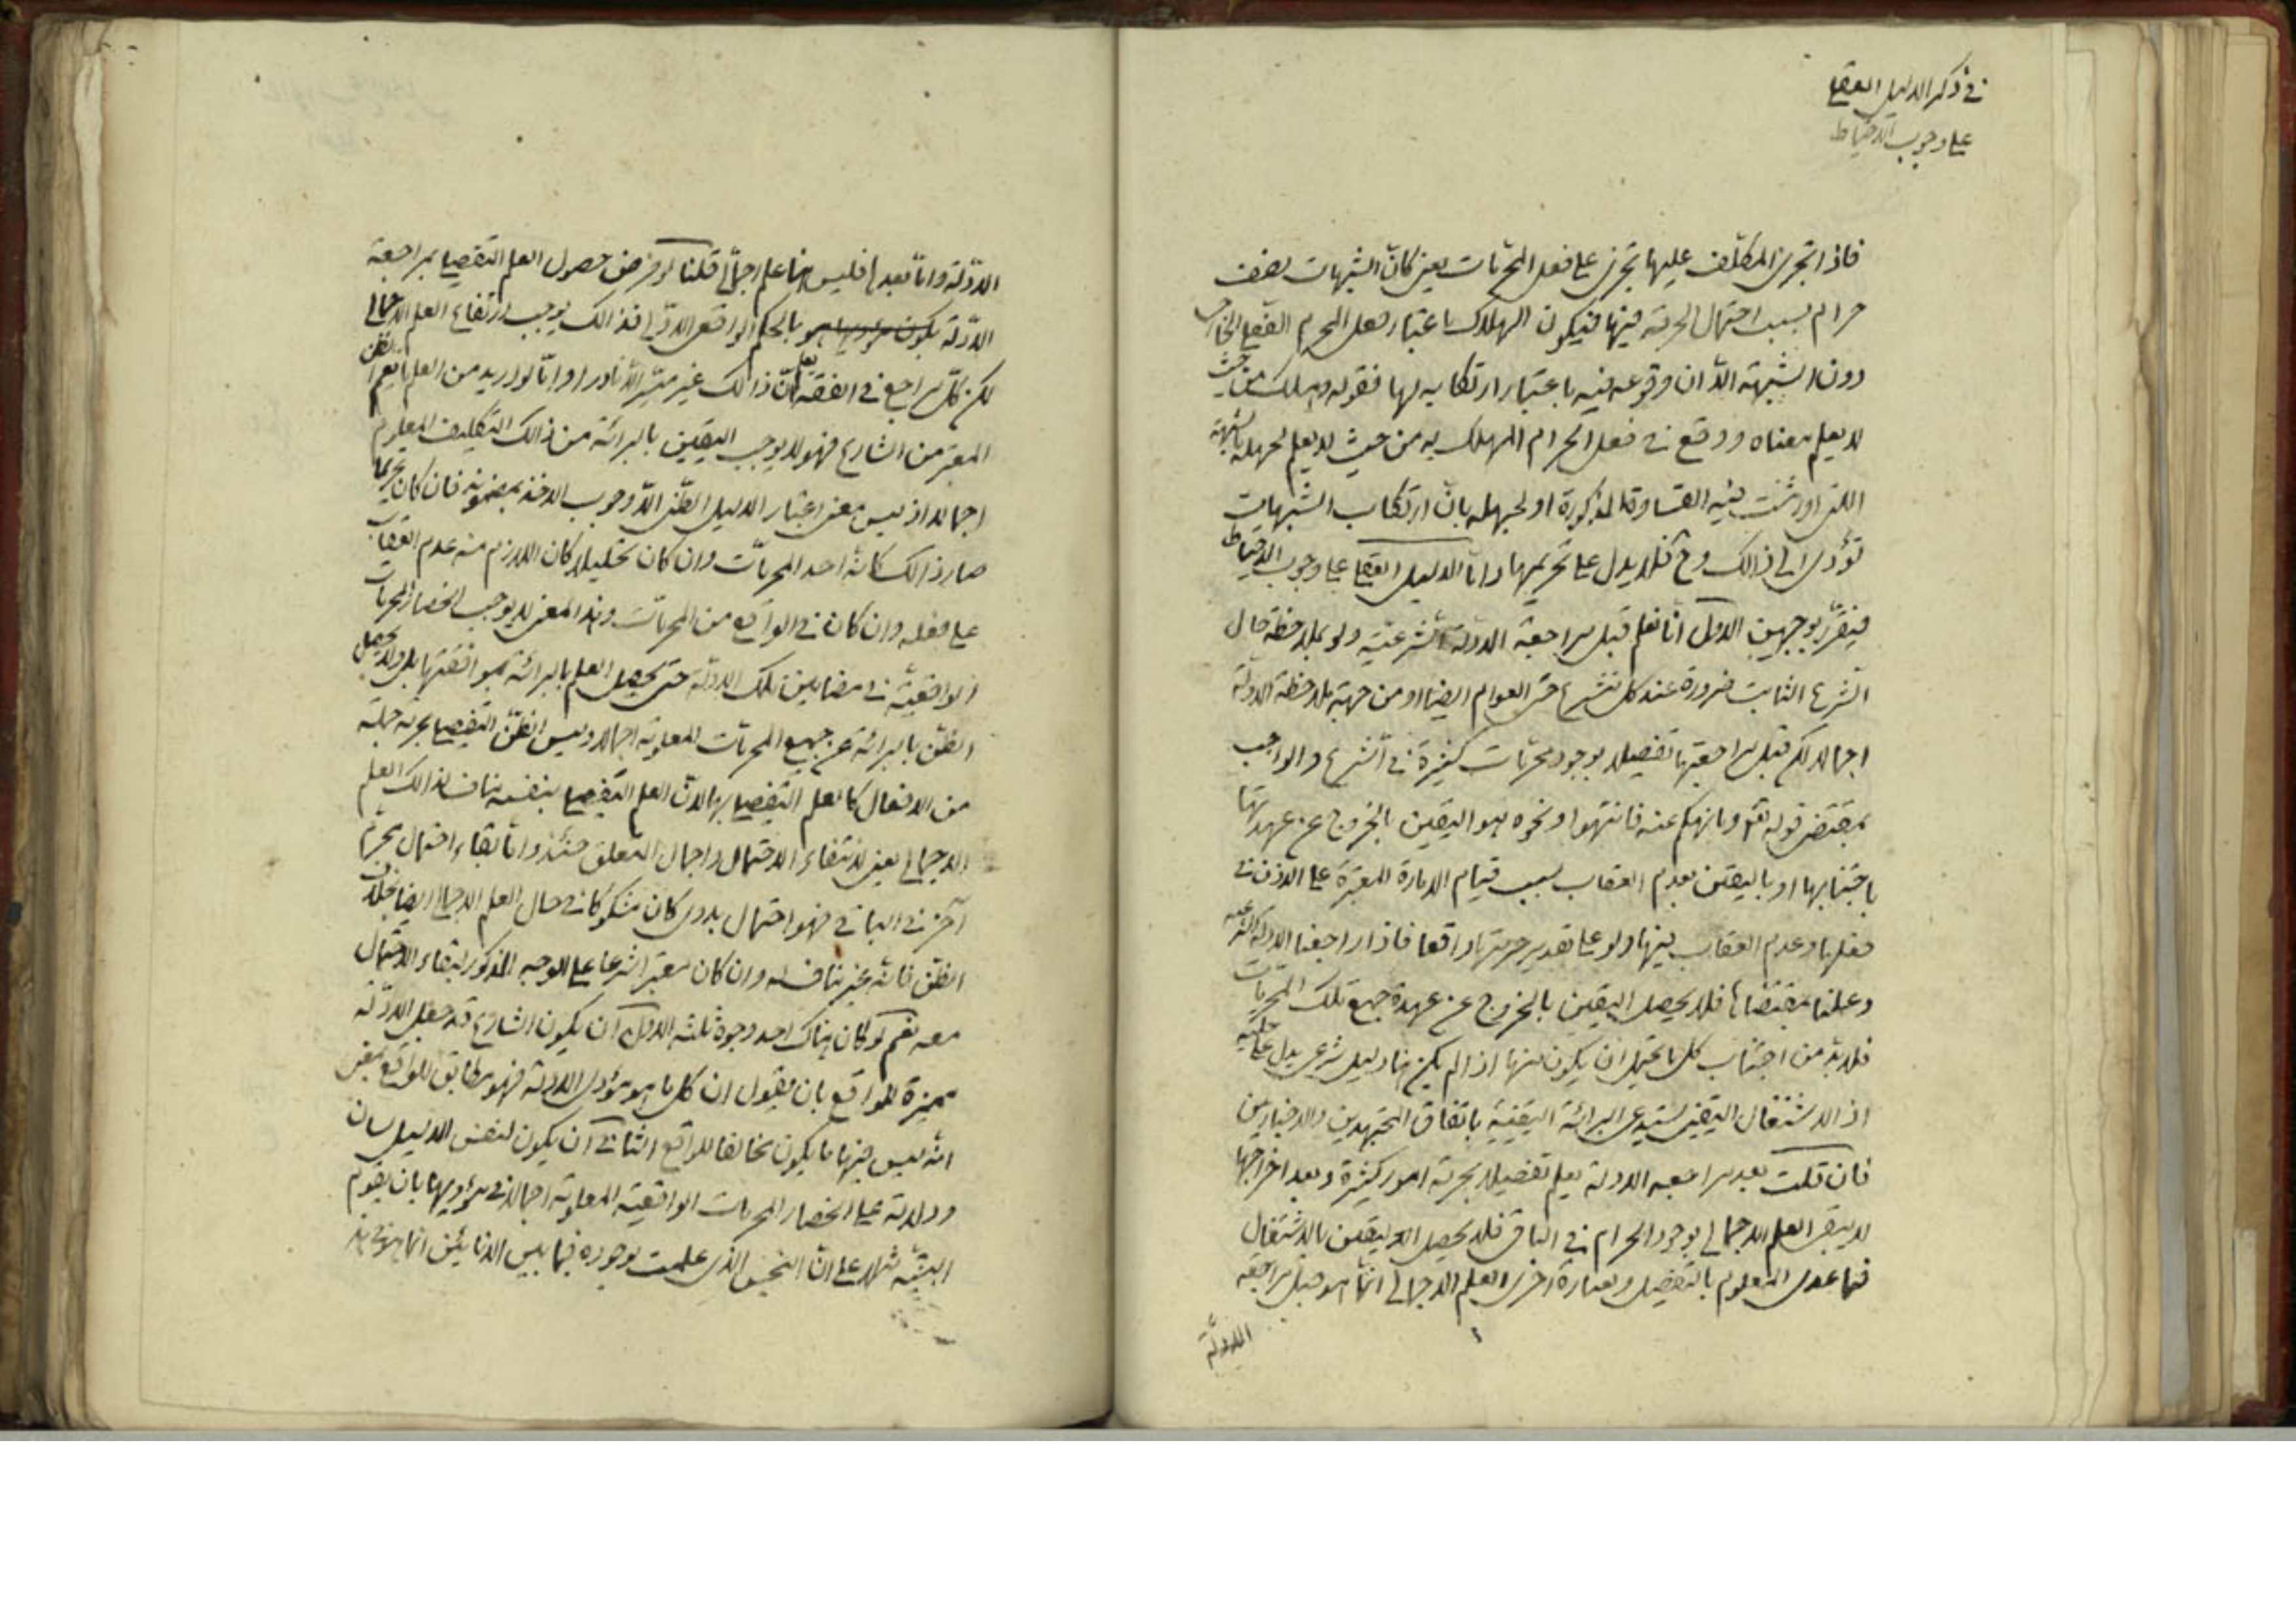 في ذكر الدليل العقلي
علي وجوب الاحتياط
فاذا تجري المكلّف عليها تجري علي فعل المحرّمات يعني كانّ الشبهات نصف
حرام بسبب احتمال الحرمة فيها فيكون الهلاك باعتبار فعل المحرم القطعي الخارجي
دون الشبهة الّا ان وقوعه فيه باعتبار ارتكابه لها فقوله وهلك من حيث
لا يعلم معناه ووقع في فعل الحرام المهلك به من حيث لا يعلم لجهله بالشبهة
التي اورثت فيه القساوة المذكورة او لجهله بانّ ارتكاب الشبهات
تؤدي الي ذالك وح فلا يدل علي تحريمها وامّا الدليل العقلي علي وجوب الاحتياط
فيقرّر بوجهين الاول انّا نعلم قبل مراجعة الادلة الشرعيّة ولو بملاحظة حال
الشرع الثابت ضرورة عند كل متشرع حتي العوام ايضا او من جهة ملاحظة الادلة
اجمالا لكن قبل مراجعتها تفصيلا بوجود محرّمات كثيرة في الشرع والواجب
بمقتضي قوله تعم وما نهيكم عنه فانتهوا ونحوه هو اليقين بالخروج عن عهدتها
باجتنابها او باليقين بعدم العقاب بسبب قيام الامارة المعتبرة علي الاذن في
فعلها وعدم العقاب فيها ولو علي تقدير حرمتها واقعا فاذا راجعنا الادلة الشرعية
وعملنا بمقتضاها فلا يحصل اليقين بالخروج عن عهدة جميع تلك المحرّمات
فلابدّ من اجتناب كل ما يحتمل ان يكون منها اذا لم يكن هنا دليل شرعي يدل علي حليّه
اذ الاشتغال اليقيني يستدعي البرائة اليقينية باتفاق المجتهدين والاخباريين
فان قلت بعد مراجعه الادلة يعلم تفصيلا بحرمة امور كثيرة وبعد اخراجها
لا يبقي العلم الاجمالي بوجود الحرام في الباقي فلا يحصل اليقين بالاشتغال
فيما عدي المعلوم بالتفصيل وبعبارة اخري العلم الاجمالي انّما هو قبل مراجعة
الادلّة
الادّلة وامّا بعدها فليس هنا علم اجمالي قلنا لو فرض حصول العلم التفصيلي بمراجعة
الادّلة بالحكم الواقعي الاوّلي فذالك يوجب ارتفاع العلم الاجمالي
لكن كلّ مراجع في الفقه يعلم انّ ذالك غير متيسّر الّا نادرا وامّا لو اريد من العلم ما يعم الظن
المعتبر من الشارع فهو لا يوجب اليقين بالبرائة من ذالك التكليف المعلوم
اجمالا اذ ليس معني اعتبار الدليل الظنّي الّا وجوب الاخذ بمضمونه فان كان تحريما
صار ذالك كانّه احد المحرمّات وان كان تحليلا كان اللازم منه عدم العقاب
علي فعله وان كان في الواقع من المحرمّات وهذا المعني لا يوجب انحصار المحرمات
الواقعيّة في مضامين تلك الادلّة حتي يحصل العلم بالبرائة بموافقتها بل ولا يحصل
الظّن بالبرائة عن جميع المحرمّات المعلومة اجمالا وليس الظنّ التفصيلي بحرمة جملة
من الافعال كالعلم التفصيلي بها لانّ العلم التفصيلي بنفسه مناف لذالك العلم
الاجمالي يعني لانتفاء الاحتمال واجمال المتعلق حينئذ وامّا بقاء احتمال محرّم
آخر في الباقي فهو احتمال بدوي كان مشكوكا في حال العلم الاجمالي ايضا بخلاف
الظنّ فانّه غير مناف له وان كان معتبرا شرعا علي الوجه المذكور لبقاء الاحتمال
معه نعم لو كان هناك احد وجوه ثلثة الاوّل ان يكون الشارع قد جعل الادّلة
مميزة للواقع بان يقول ان كل ما هو مؤدي الادلة فهو مطابق للواقع بمعني
انّه ليس فيها ما يكون مخالفا للواقع الثاني ان يكون لنفس الدليل لسان
ودلالة علي انحصار المحرمات الواقعيّة المعلومة اجمالا في مؤديها بان يقوم
البيّنه مثلا علي انّ النجس الذي علمت بوجوده فيما بين الانائين انما هو في هذا